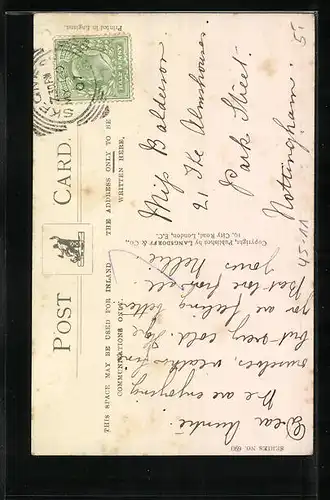 Printed in England.
HALF PENNY
POST CARD.
THIS SPACE MAY BE USED FOR INLAND
COMMUNICATIONS ONLY.
THE ADDRESS ONLY TO BE
WRITTEN HERE.
Dear Auntie
We are enjoying
ourselves, weather fine
but very cold. Hope
you are feeling better
Best love from all.
Yours Nellie
Copyright, Published by LANGSDORFF & Co.,
19, City Road, London, E.C.
Miss Balderson
21 The Almshouses
Park Street
Nottingham.
SERIES No. 690
45211